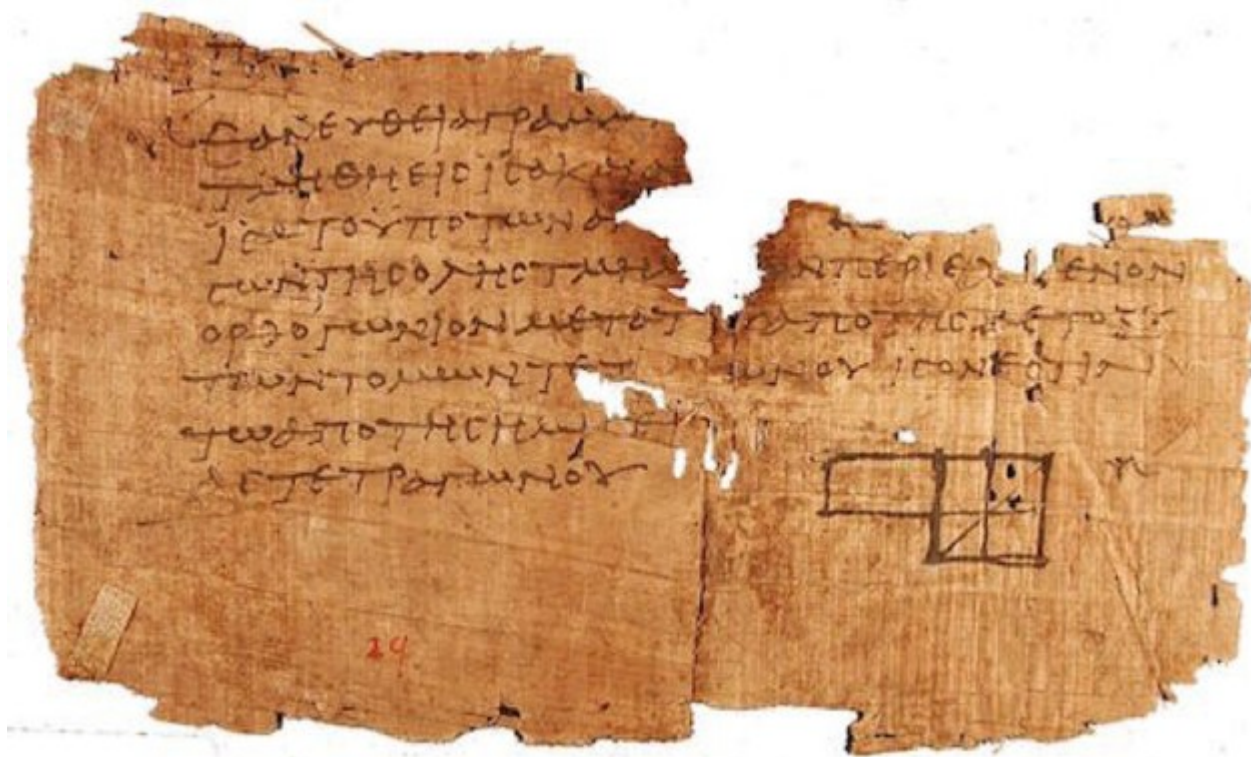 ΕΑΝΕΥΘΕΙΑΓΡΑΜΜ
ΤΜΗΘΗΕΙCΙCΑΚΑΙΑΝ
ΙCΑΤΟΥΠΟΤΩΝΑ
ΤΗCΟΛΗCΤΜΗΜ ΝΠΕΡΙΕΧ ΜΕΝΟΝ
ΟΡΘΟΓΩΝΙΟΝΜΕΤΑΤ ΑΠΟΤΗCΜΕΤΟΞΥ
ΤΩΝΤΟΜΩΝΤΕΤ ΩΝΟΥΙCΟΝΕCΤΙΝ
ΤΩΑΠΟΤΗCΗΜΙCΕΙ
ΑCΤΕΤΡΑΓΩΝΟΥ
29